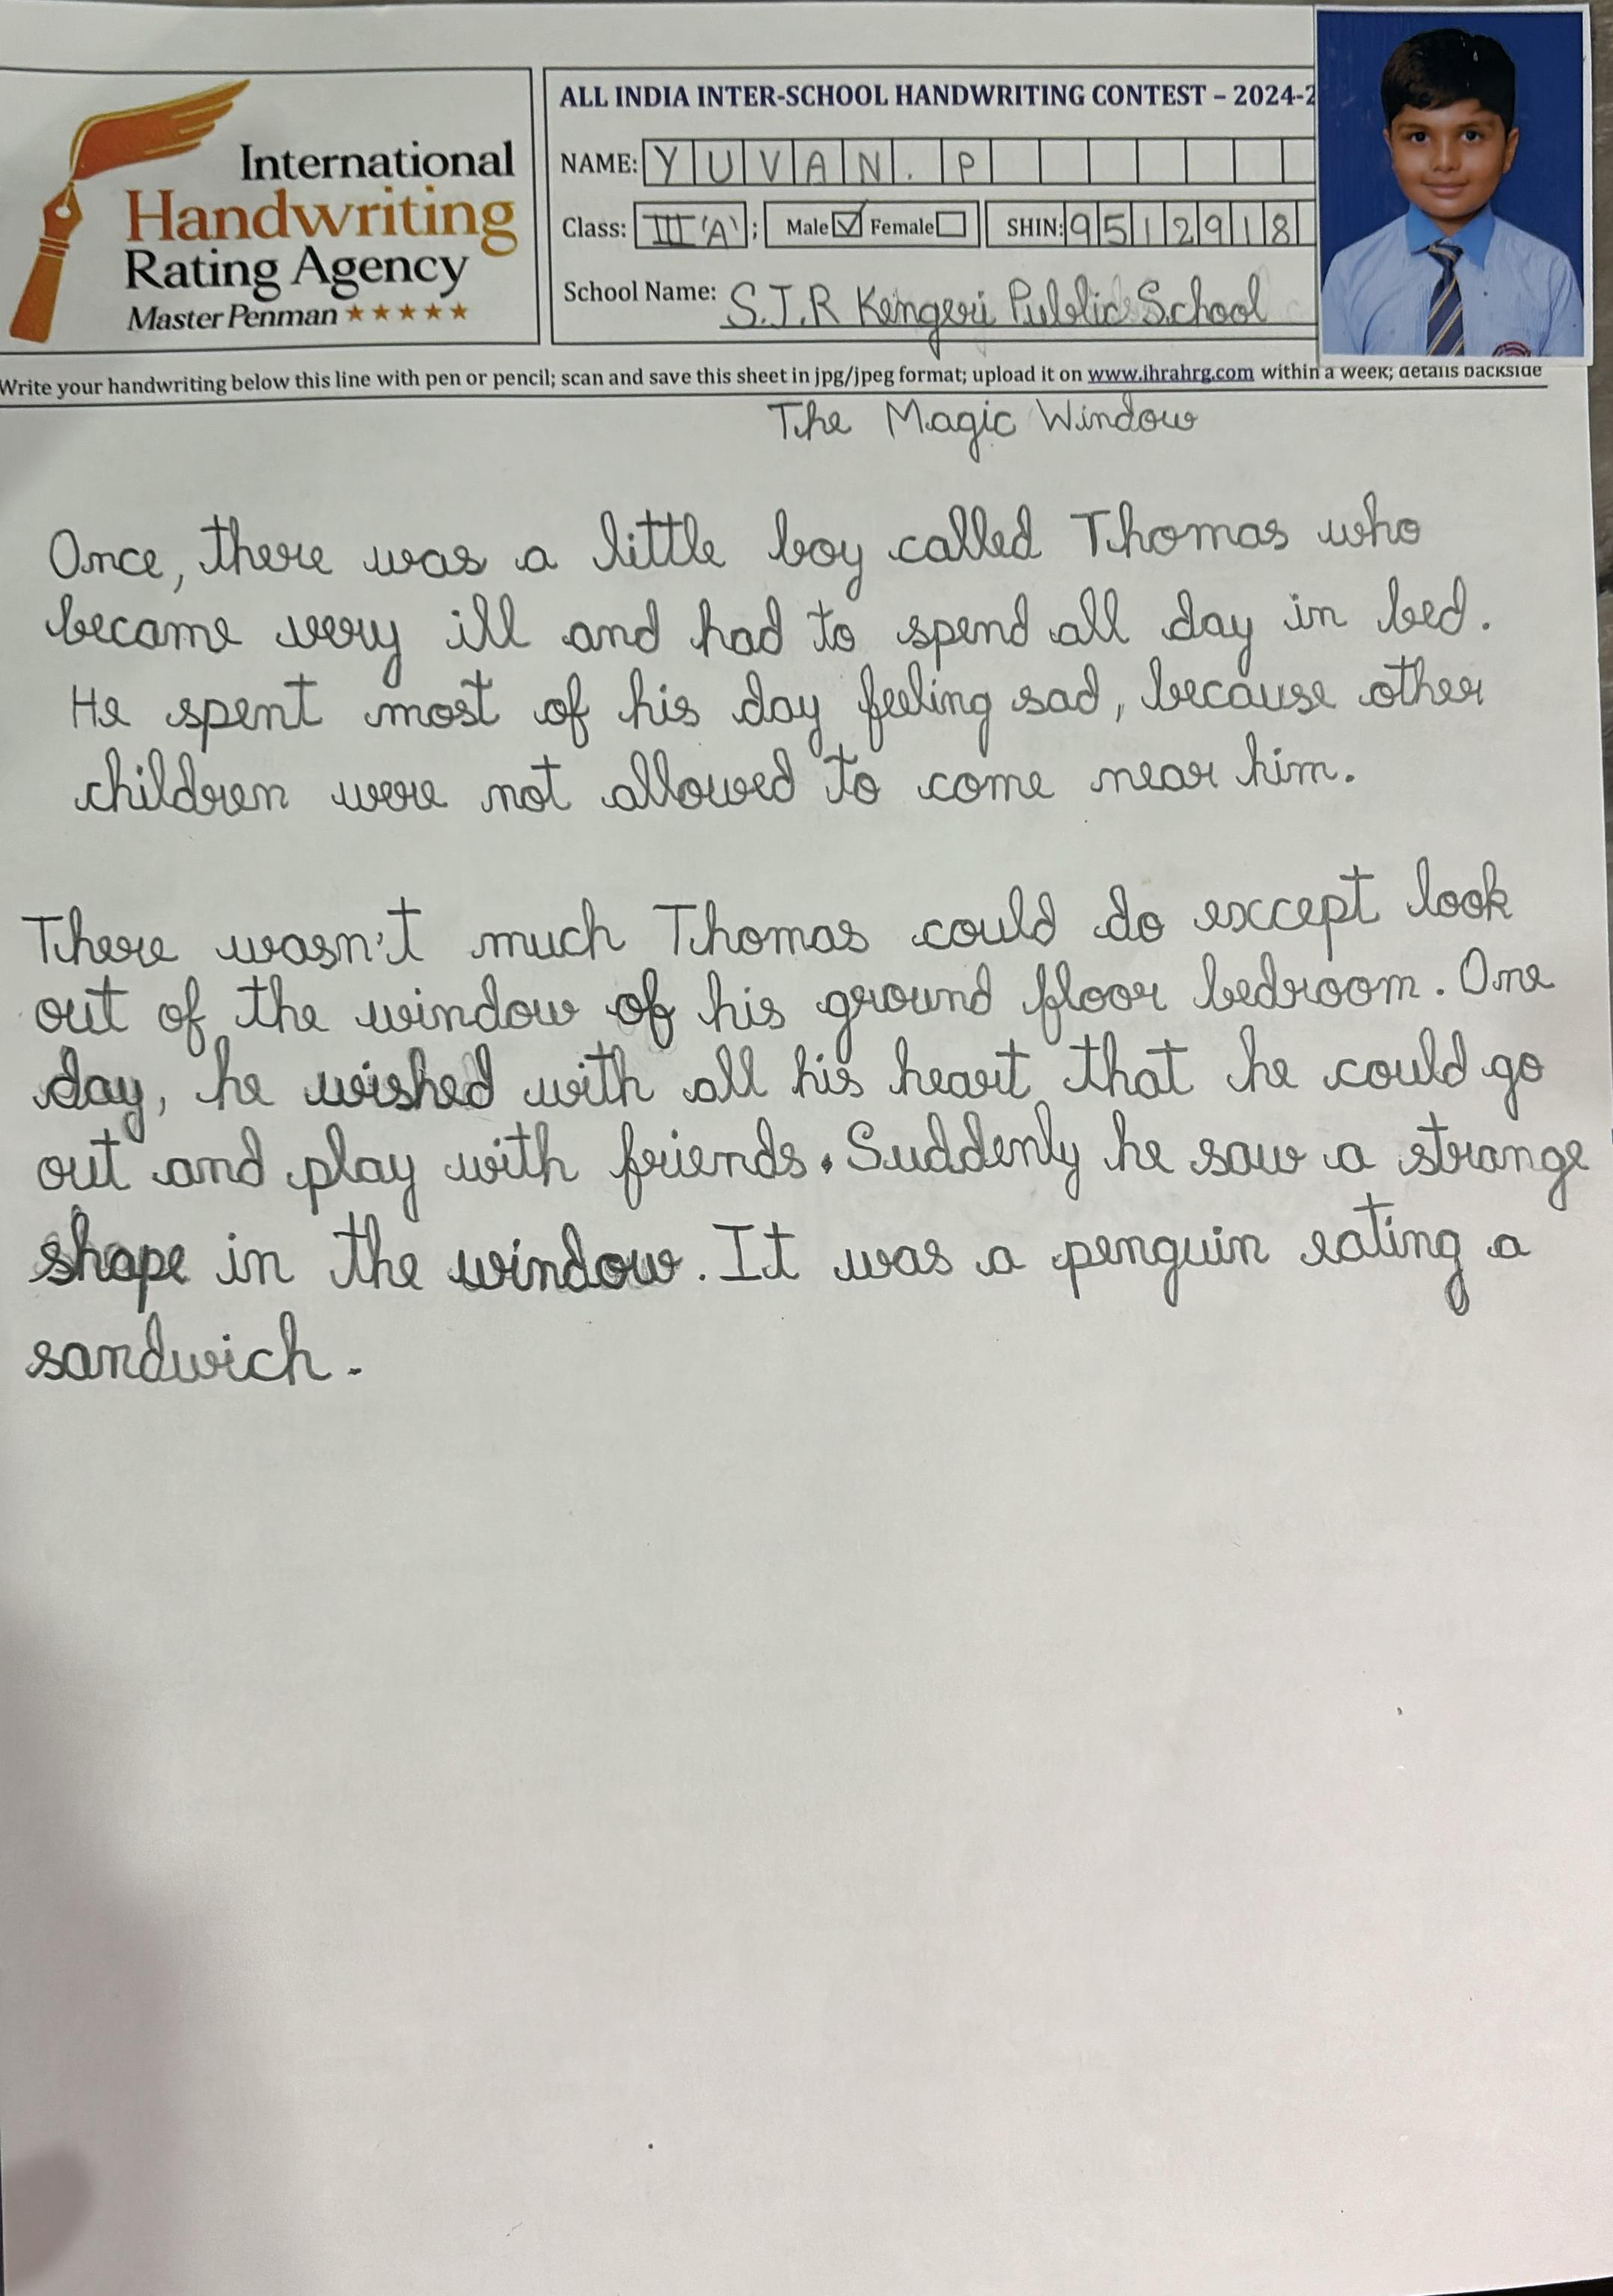 International
Handwriting
Rating Agency
Master Penman
ALL INDIA INTER-SCHOOL HANDWRITING CONTEST – 2024-2
NAME: YUVAN. P
Class: III 'A' ; Male Female SHIN: 9512918
School Name: S.J.R Kengeri Public School
Write your handwriting below this line with pen or pencil; scan and save this sheet in jpg/jpeg format; upload it on www.ihrahrg.com within a week; details backside
The Magic Window
Once, there was a little boy called Thomas who
became very ill and had to spend all day in bed.
He spent most of his day feeling sad, because other
children were not allowed to come near him.
There wasn't much Thomas could do except look
out of the window of his ground floor bedroom. One
day, he wished with all his heart that he could go
out and play with friends. Suddenly he saw a strange
shape in the window. It was a penguin eating a
sandwich.